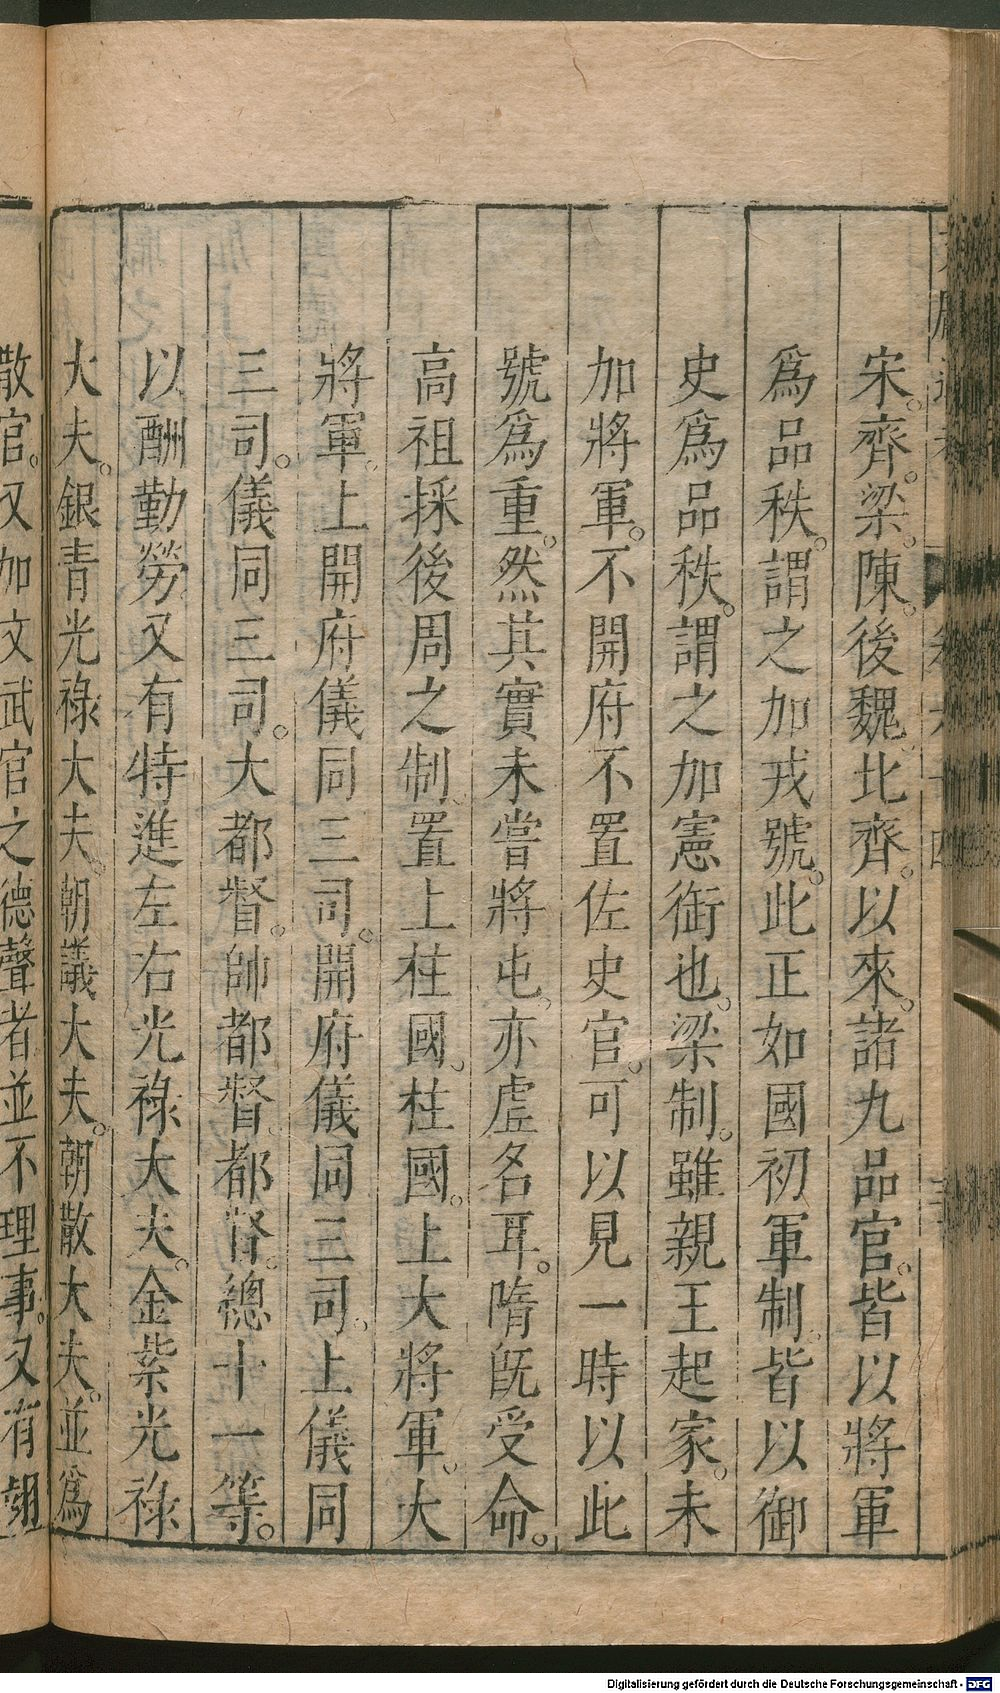 宋。齊。梁。陳。後魏。北齊。以來。諸九品官。皆以將軍
爲品秩。謂之加戎號。此正如國初軍制。皆以御
史爲品秩。謂之加憲銜也。梁制。雖親王起家。未
加將軍。不開府不置佐史官。可以見一時以此
號爲重。然其實未嘗將屯。亦虛名耳。隋旣受命。
高祖採後周之制。置上柱國。柱國。上大將軍。大
將軍。上開府儀同三司。開府儀同三司。上儀同
三司。儀同三司。大都督。帥都督。都督。總十一等。
以酬勤勞又有特進左右光祿大夫。金紫光祿
大夫。銀青光祿大夫。朝議大夫。朝散大夫。並爲
散官。又加文武官之德聲者並不理事。又有翊
Digitalisierung gefördert durch die Deutsche Forschungsgemeinschaft - DFG